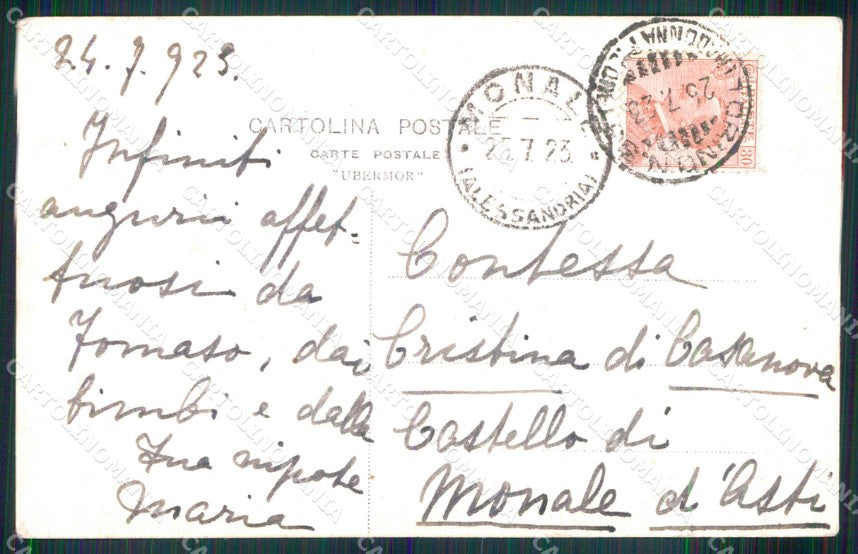 24.7.923.
CARTOLINA POSTALE
CARTE POSTALE
"UBERMOR"
MONALE
25.7.23
(ALESSANDRIA)
25.7.23
30
Infiniti
auguri affet-
tuosi da
Tomaso, dai
bimbi e dalla
tua nipote
Maria
Contessa
Cristina di Casanova
Castello di
Monale d'Asti
CARTOLINOMANIA